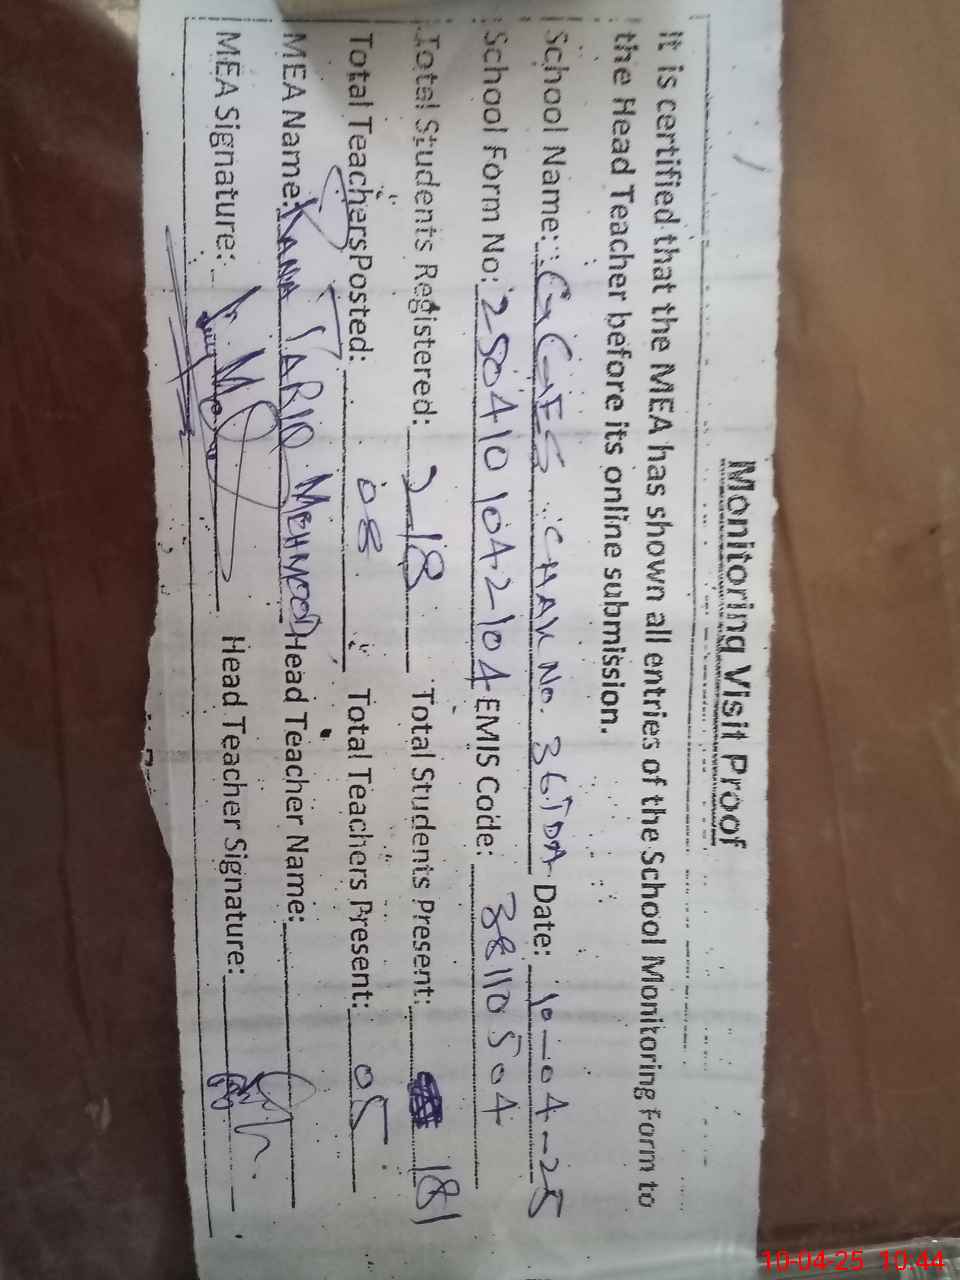 Monitoring Visit Proof
It is certified that the MEA has shown all entries of the School Monitoring Form to
the Head Teacher before its online submission.
School Name: GGES CHAK No. 36TDA Date: 10-04-25
School Form No: 250410 1042104 EMIS Code: 38110504
Total Students Registered: 218 Total Students Present: 181
Total Teachers Posted: 08 Total Teachers Present: 05
MEA Name: RANA TARIQ MEHMOOD Head Teacher Name:
MEA Signature: Head Teacher Signature:
10-04-25 10:44